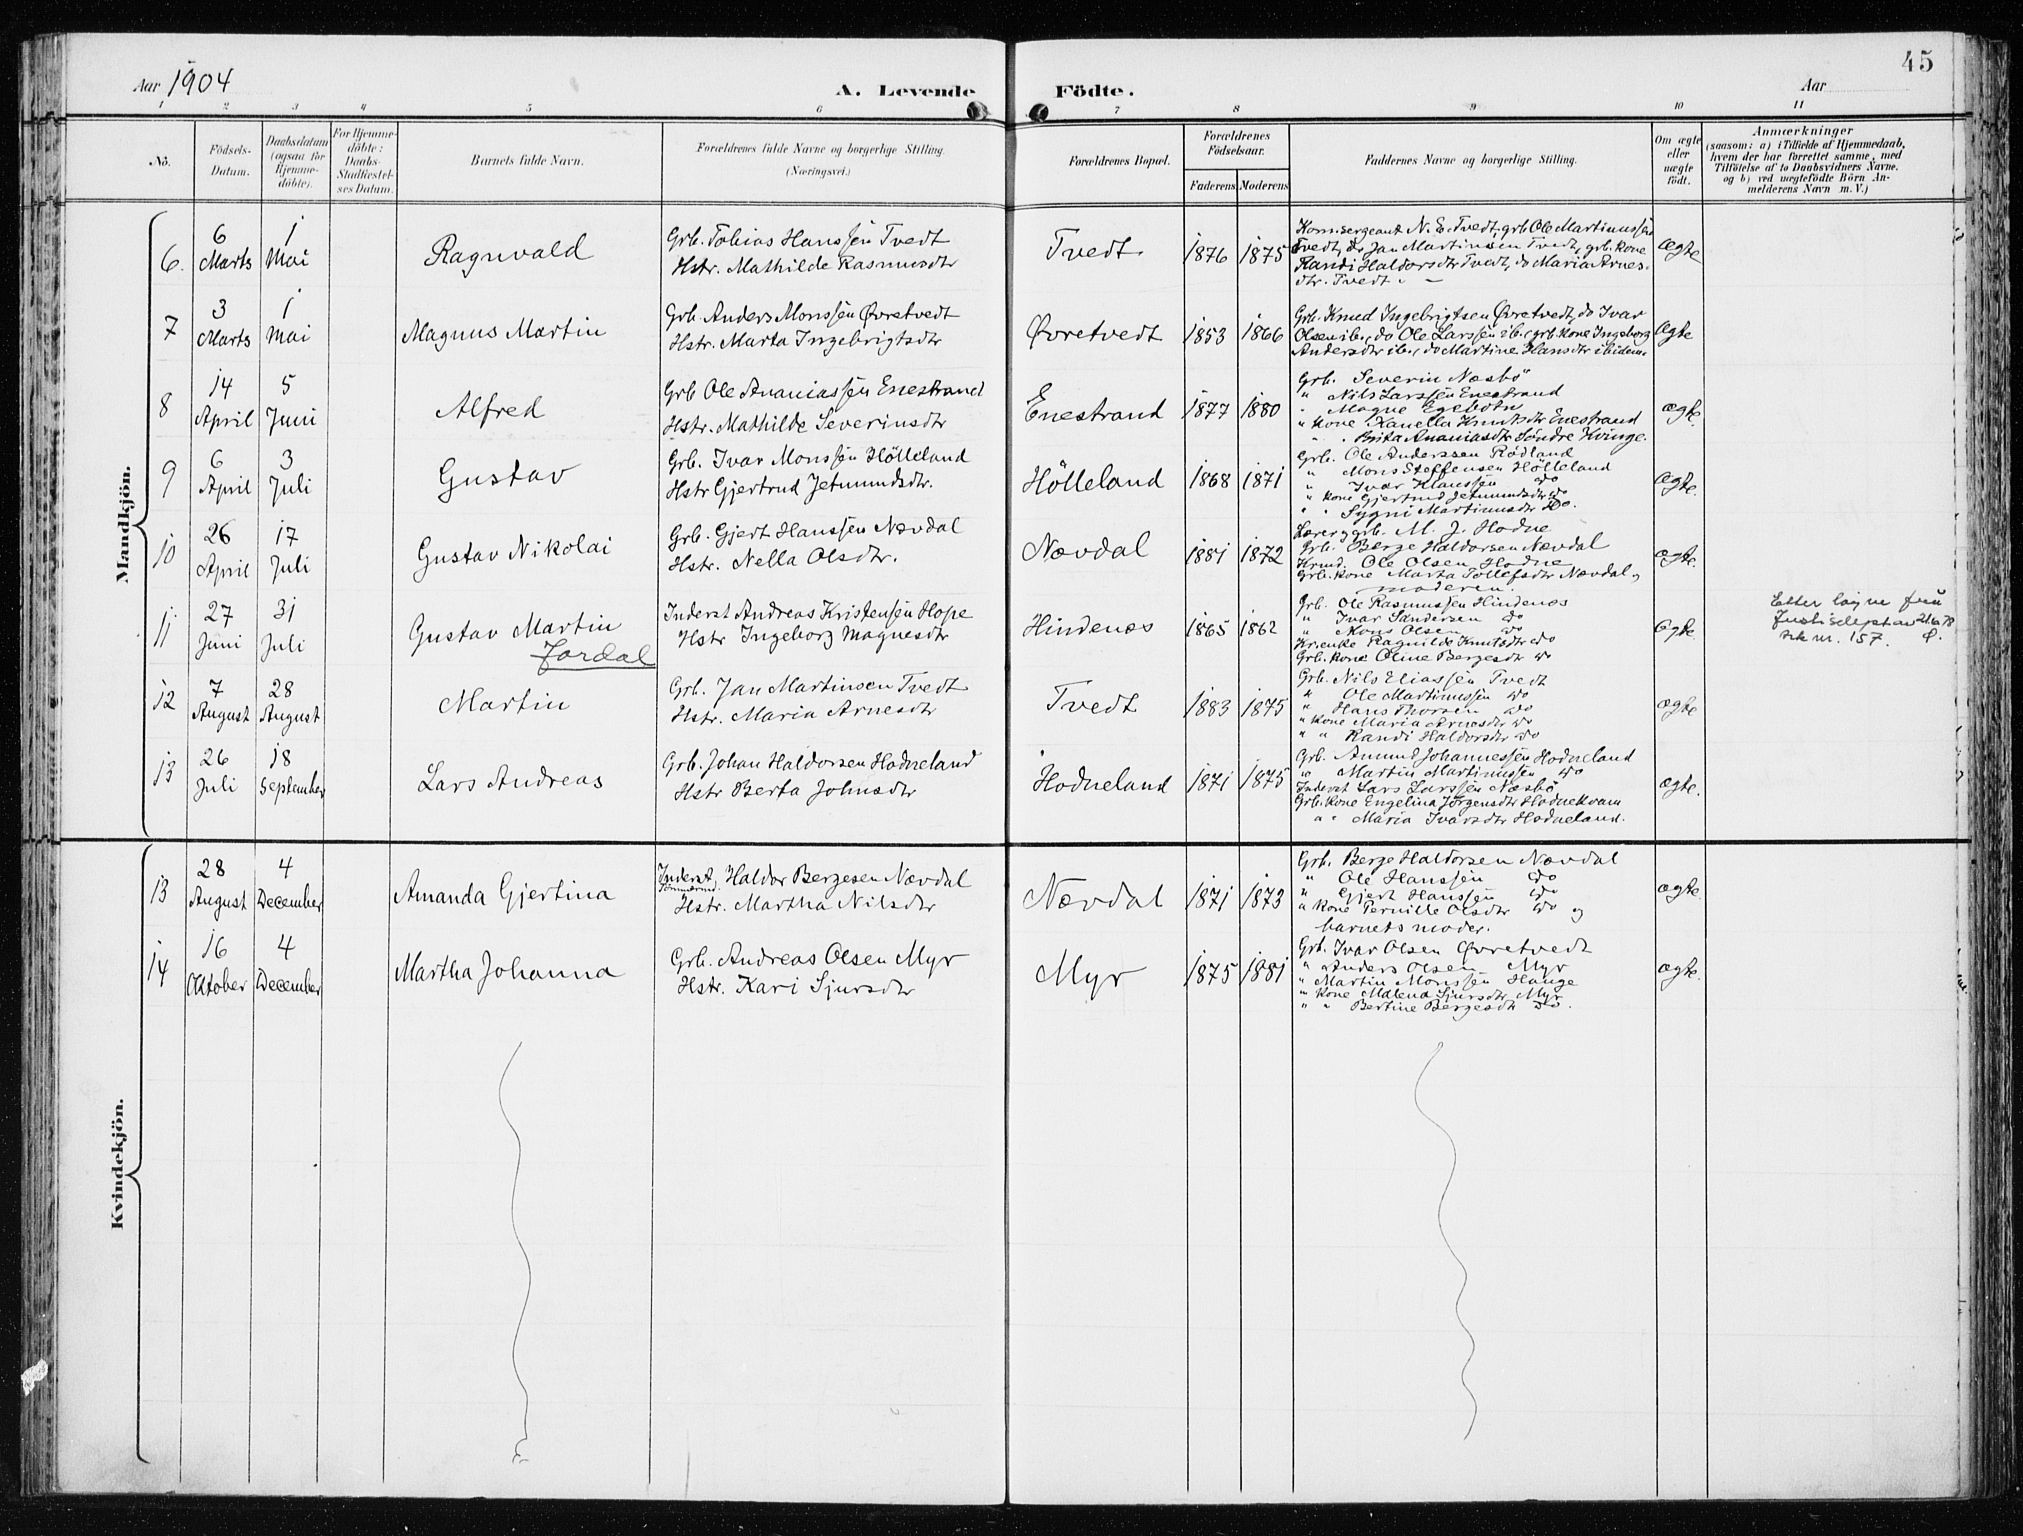 45
Aar 1904
A. Levende Födte.
Aar
1 2 3 4 5 6 7 8 9 10 11
No.
Födsels-Datum.
Daabsdatum (ogsaa for Hjemmedöbte).
For Hjemmedöbte: Daabs-Stadfæstelses Datum.
Barnets fulde Navn.
Forældrenes fulde Navne og borgerlige Stilling. (Næringsvei.)
Forældrenes Bopæl.
Forældrenes Födselsaar.
Faderens Moderens
Faddernes Navne og borgerlige Stilling.
Om ægte eller uægte födt.
Anmærkninger
(saasom: a) i Tilfælde af Hjemmedaab, hvem der har forrettet samme, med Tilföielse af to Daabsvidners Navne. og b) ved uægtefödte Börn Anmelderens Navn m. V.)
Mandkjön.
6. 6 Marts 1 Mai Ragnvald
Grb. Tobias Hanssen Tvedt
Hstr. Mathilde Rasmusdtr
Tvedt 1876 1875
Korn.sergeant N. E. Tvedt, grb. Ole Martinussen
Tvedt, do Jan Martinsen Tvedt, grb. kone
Randi Haldorsdtr Tvedt, do Maria Arnes-
dtr. Tvedt. –
Ægte
7 3 Marts 1 Mai Magnus Martin
Grb. Anders Monssen Øvretvedt
Hstr. Marta Ingebrigtsdtr
Øvretvedt 1853 1866
Grb. Knud Ingebrigtsen Øvretvedt, do Ivar
Olsen ib., do Ole Larssen ib., grb. kone Ingeborg
Andersdtr ib., do Martine Hansdtr ibidem.
Ægte
8 14 April 5 Juni Alfred
Grb Ole Ananiassen Enestrand
Hstr. Mathilde Severinsdtr
Enestrand 1877 1880
Grb. Severin Næsbö
" Nils Larssen Enestrand
" Magne Egebotn
" kone Kanella Knutsdtr Enestrand
" " Brita Ananiasdtr Søndre Kvinge.
ægte.
9 6 April 3 Juli Gustav
Grb. Ivar Monssen Hölleland
Hstr Gjertrud Jetmundsdtr.
Hölleland 1868 1871
Grb. Ole Anderssen Rödland
" Mons Steffensen Hölleland
" Ivar Klaussen do
" kone Gjertrud Jetmundsdtr do
" " Sygni Martinusdtr do.
Ægte.
10 26 April 17 Juli Gustav Nikolai
Grb. Gjert Hanssen Nævdal
Hstr. Nella Olsdtr.
Nævdal 1881 1872
Lærer grb. M. J. Hodne
Grb. Berge Haldorsen Nævdal
Krmd. Ole Olsen Hodne
Grb. kone Marta Tollefsdtr Nævdal og
moderen.
ægte.
11 27 Juni 31 Juli Gustav Martin
Jordal
Inderst Andreas Kristensen Hope
Hstr Ingeborg Magnesdtr
Hindenæs 1865 1862
Grb. Ole Rasmussen Hindenæs
" Ivar Sandersen do
" Mons Olsen do
Kr.enke Ragnilde Knutsdtr do
Grb. kone Oline Bergesdtr do
Ægte.
Etter løyve frå
Justisdept av 21.6.78
sak nr. 157. Ø.
12 7 August 28 August Martin
Grb. Jan Martinsen Tvedt
Hstr. Maria Arnesdtr
Tvedt 1883 1875
Grb. Nils Eliassen Tvedt
" Ole Martinussen do
" Hans Thorsen do
" kone Maria Arnesdtr do
" " Randi Haldorsdtr do
ægte
13 26 Juli 18 September Lars Andreas
Grb. Johan Haldorsen Hodneland
Hstr Berta Johnsdtr
Hodneland 1871 1875
Grb. Amund Johannessen Hodneland
" Martin Martinussen do
Inderst Lars Larssen Næsbö
Grb. kone Engelina Jörgensdtr Hodnekvam
" " Maria Ivarsdtr Hodneland.
ægte.
Kvindekjön.
13 28 August 4 December Amanda Gjertina
Inderst, Tömmermd. Haldor Bergesen Nævdal
Hstr. Martha Nilsdtr
Nævdal 1871 1873
Grb. Berge Haldorsen Nævdal
" Ole Hanssen do
" Gjert Hanssen do
" kone Pernille Olsdtr do og
barnets moder.
ægte.
14 16 Oktober 4 December Martha Johanna
Grb. Andreas Olsen Myr
Hstr. Kari Sjursdtr
Myr 1875 1881
Grb. Ivar Olsen Øvretvedt
" Anders Olsen Myr
" Martin Monssen Hauge
" kone Malena Sjursdtr Myr
" " Bertine Bergesdtr do.
ægte.